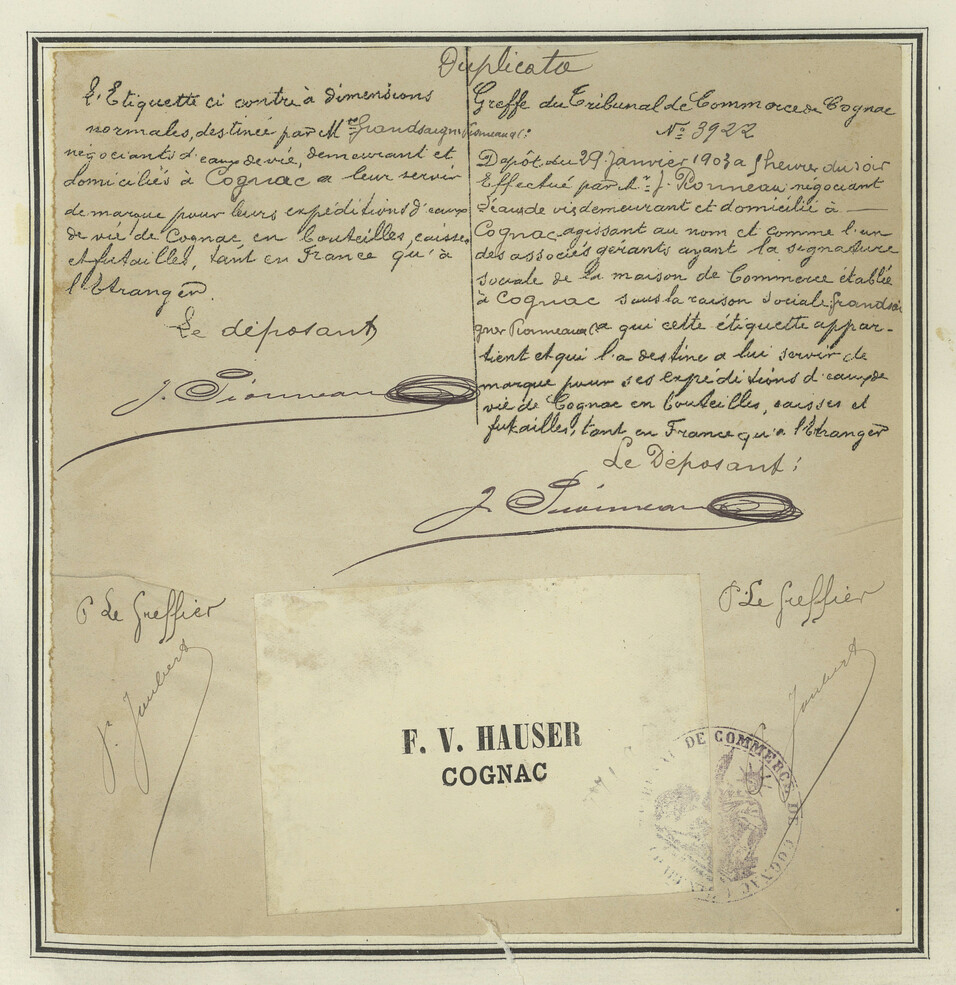 Duplicata
L'Etiquette ci contre à dimensions
normales, destinée par M
négociants d'eaux de vie, demeurant et
domiciliés à Cognac a leur servir
de marque pour leurs expéditions d'eaux
de vie de Cognac en bouteilles, caisses
et futailles, tant en France qu'à
l'Etranger.
Le déposant
J. Pionneau
Greffe du Tribunal de Commerce de Cognac
N° 3922
Dépôt du 29 Janvier 1903 a heure du soir
Effectué par Mr J. Pionneau négociant
d'eaux de vie demeurant et domicilié à —
Cognac, agissant au nom et comme l'un
des associés gérants ayant la signature
sociale de la maison de Commerce établie
à Cognac sous la raison sociale: Grandsai
gner Pionneau a qui cette étiquette appar-
tient et qui l'a destine a lui servir de
marque pour ses expéditions d'eaux de
vie de Cognac en bouteilles, caisses et
futailles, tant en France qu'à l'Etranger
Le Déposant:
J. Pionneau
P Le Greffier
Joubert
P. Le Greffier
Joubert
F. V. HAUSER
COGNAC
TRIBUNAL DE COMMERCE DE COGNAC